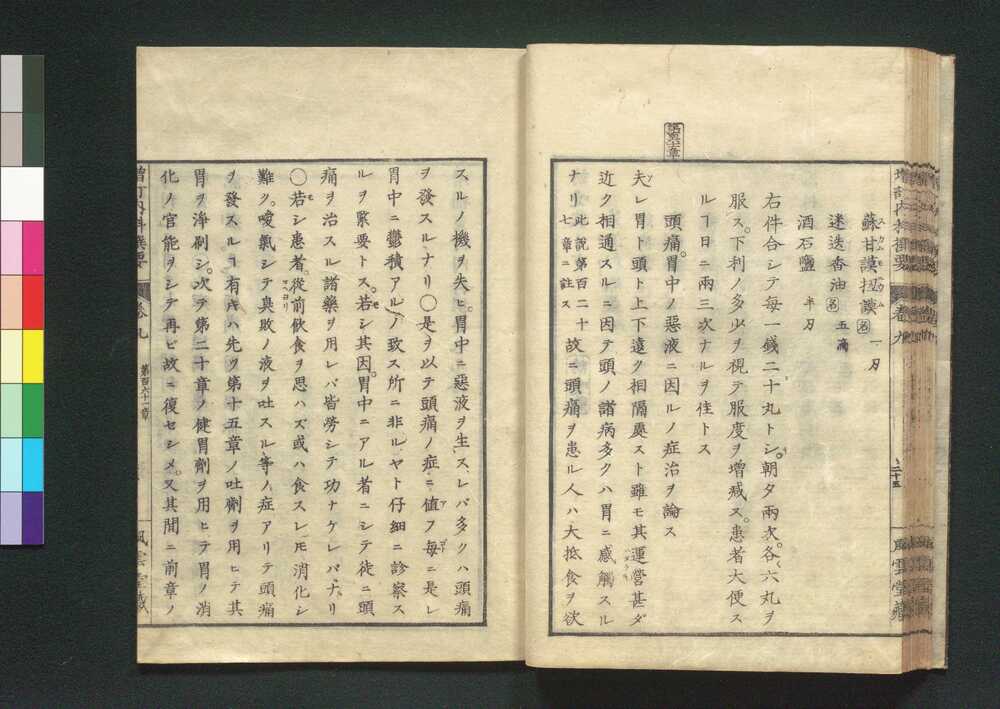 蘇甘謨扭謨 名 一刃
スカムモ
迷迭香油 名 五滴
酒石鹽 半刃
右件合シテ毎一錢二十丸トシ。朝夕兩次。各六丸ヲ
服ス。下利ノ多少ヲ視テ服度ヲ増減ス。患者大便ス
ルヿ日ニ兩三次ナルヲ佳トス
頭痛。胃中ノ惡液ニ因ルノ症治ヲ論ス
夫レ胃ト頭ト上下遠ク相隔處スト雖モ其運營甚ダ
近ク相通スルニ因テ頭ノ諸病多クハ胃ニ感觸スル
ナリ 此説第百二十七章ニ註ス 故ニ頭痛ヲ患ル人ハ大抵食ヲ欲
スルノ機ヲ失ヒ。胃中ニ惡液ヲ生ス、レバ多クハ頭痛
ヲ發スルナリ〇是ヲ以テ頭痛ノ症ニ値フ毎ニ是レ
胃中ニ鬱積アルノ致ス所ニ非ルヤト仔細ニ診察ス
ルヲ緊要トス。若シ其因。胃中ニアル者ニシテ徒ニ頭
痛ヲ治スル諸藥ヲ用レバ皆勞シテ功ナケレバナリ
〇若シ患者。從前飲食ヲ思ハズ或ハ食スレ𪜈消化シ
難ク。噯氣シテ臭敗ノ液ヲ吐スル等ノ症アリテ頭痛
ヲ發スルヿ有ラハ先ツ第十五章ノ吐劑ヲ用ヒテ其
胃ヲ淨刷シ。次テ第二十章ノ健胃劑ヲ用ヒテ胃ノ消
化ノ官能ヲシテ再ビ故ニ復セシメ。又其間ニ前章ノ
増訂内科撰要 卷九 第百六十一章 風雲堂藏